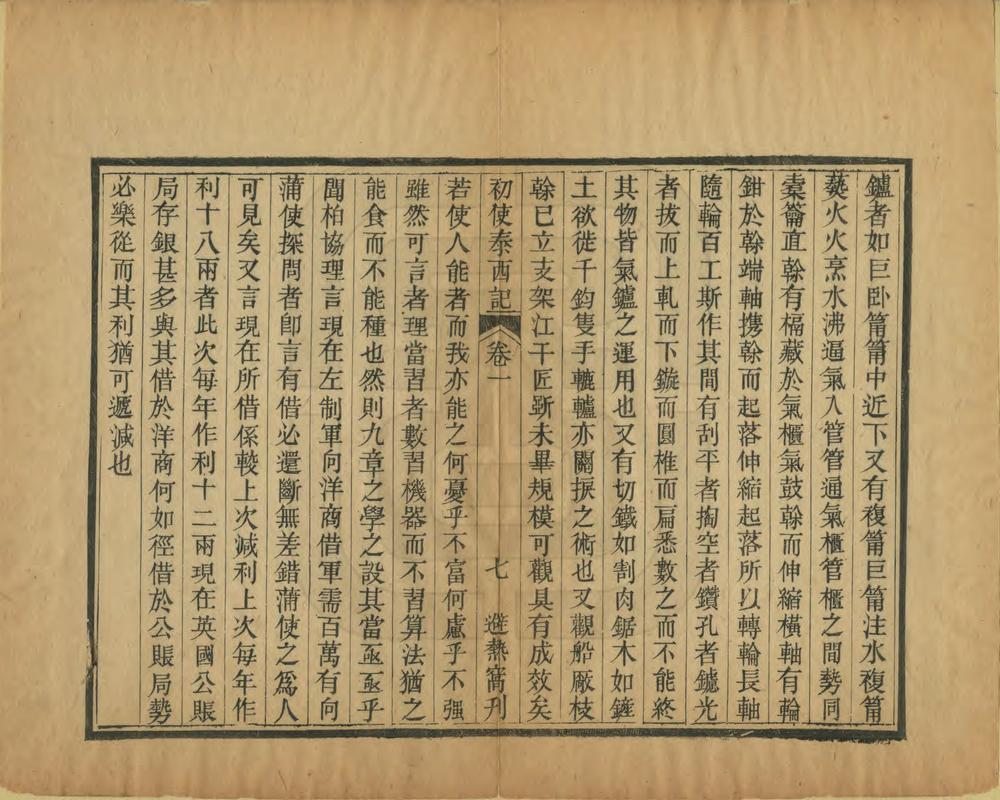 鑪者如巨卧筩筩中近下又有複筩巨筩注水複筩
爇火火烹水沸逼氣入管管通氣櫃管櫃之間勢同
橐籥直榦有槅藏於氣櫃氣鼓榦而伸縮橫軸有輪
鉗於榦端軸携榦而起落伸縮起落所以轉輪長軸
隨輪百工斯作其間有刮平者掏空者鑽孔者鑢光
者拔而上軋而下鏇而圓椎而扁悉數之而不能終
其物皆氣鑪之運用也又有切鐵如割肉鋸木如錐
土欲徙千鈞隻手轆轤亦關捩之術也又觀船廠枝
榦已立支架江干匠斲未畢規模可觀具有成效矣
初使泰西記 卷一 七 避熱窩刊
若使人能者而我亦能之何憂乎不富何慮乎不强
雖然可言者理當習者數習機器而不習算法猶之
能食而不能種也然則九章之學之設其當亟亟乎
聞柏協理言現在左制軍向洋商借軍需百萬有向
蒲使探問者卽言有借必還斷無差錯蒲使之爲人
可見矣又言現在所借係較上次減利上次每年作
利十八兩者此次每年作利十二兩現在英國公賬
局存銀甚多與其借於洋商何如徑借於公賬局勢
必樂從而其利猶可遞減也